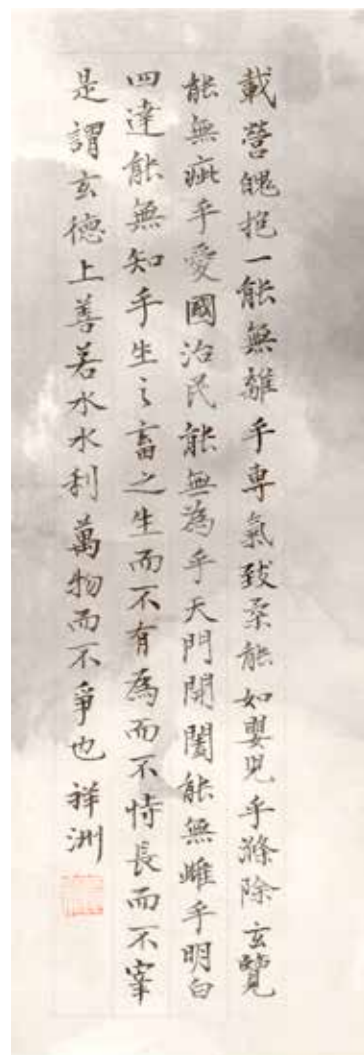 載營魄抱一能無離乎專氣致柔能如嬰兒乎滌除玄覽
能無疵乎愛國治民能無為乎天門開闔能無雌乎明白
四達能無知乎生之畜之生而不有為而不恃長而不宰
是謂玄德上善若水水利萬物而不爭也祥洲